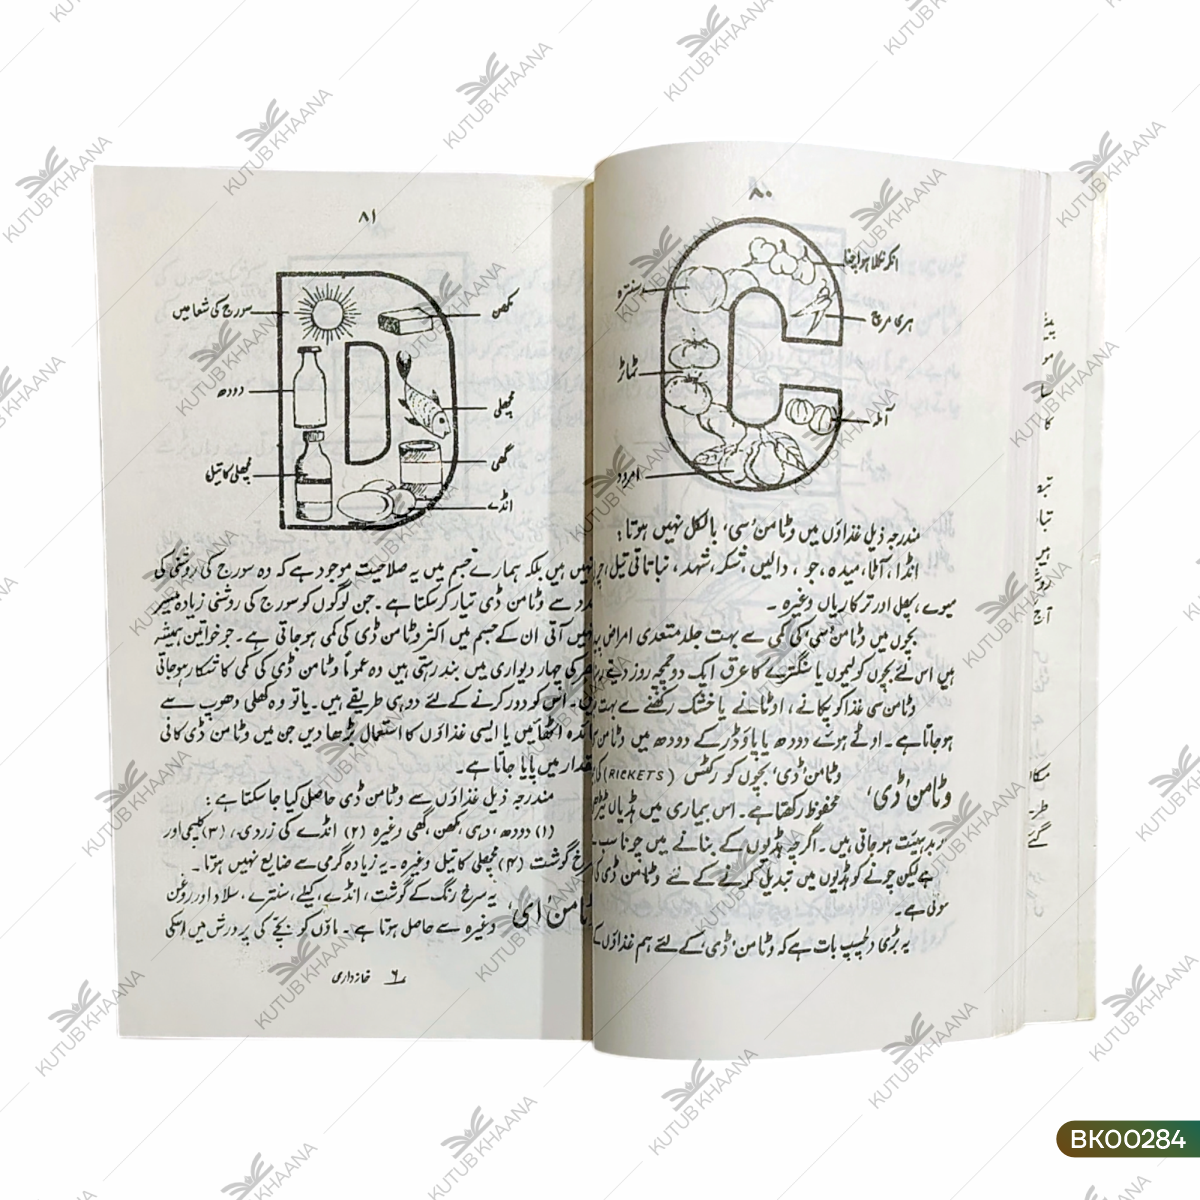 ۸۰
انکر نکلا ہوا چنا
سنترہ
ہری مرچ
ٹماٹر
آملہ
امرود
مندرجہ ذیل غذاؤں میں وٹامن 'سی' بالکل نہیں ہوتا:
انڈا، آٹا، میدہ، جو، دالیں، شکر، شہد، نباتاتی تیل،
میوے، پھل اور ترکاریاں وغیرہ۔
بچوں میں وٹامن 'سی' کی کمی سے بہت جلد متعدی امراض
ہیں اس لئے بچوں کو لیموں یا سنگترے کا عرق ایک دو چمچہ روز دیتے
وٹامن سی غذا کو پکانے، اوٹانے یا خشک رکھنے سے بہت
ہو جاتا ہے۔ اوٹے ہوئے دودھ یا پاؤڈر کے دودھ میں وٹامن
وٹامن 'ڈی' بچوں کو رکٹس (RICKETS) کی
وٹامن 'ڈی' محفوظ رکھتا ہے۔ اس بیماری میں ہڈیاں
بدہیئت ہو جاتی ہیں۔ اگرچہ ہڈیوں کے بنانے میں چونا سب
ہے لیکن چونے کو ہڈیوں میں تبدیل کرنے کے لئے وٹامن ڈی کی
ہوتی ہے۔
یہ بڑی دلچسپ بات ہے کہ وٹامن 'ڈی' کے لئے ہم غذاؤں کے
۸۱
سورج کی شعاعیں
مکھن
دودھ
مچھلی
گھی
مچھلی کا تیل
انڈے
نہیں ہیں بلکہ ہمارے جسم میں یہ صلاحیت موجود ہے کہ وہ سورج کی روشنی کی
مدد سے وٹامن ڈی تیار کر سکتا ہے۔ جن لوگوں کو سورج کی روشنی زیادہ میسر
نہیں آتی ان کے جسم میں اکثر وٹامن ڈی کی کمی ہو جاتی ہے۔ جو خواتین ہمیشہ
گھر کی چہار دیواری میں بند رہتی ہیں وہ عموماً وٹامن ڈی کی کمی کا شکار ہو جاتی
ہیں۔ اس کو دور کرنے کے لئے دو ہی طریقے ہیں۔ یا تو وہ کھلی دھوپ سے
فائدہ اٹھائیں یا ایسی غذاؤں کا استعمال بڑھا دیں جن میں وٹامن ڈی کافی
مقدار میں پایا جاتا ہے۔
مندرجہ ذیل غذاؤں سے وٹامن ڈی حاصل کیا جا سکتا ہے:
(۱) دودھ، دہی، مکھن، گھی وغیرہ (۲) انڈے کی زردی، (۳) کلیجی اور
سرخ گوشت (۴) مچھلی کا تیل وغیرہ۔ یہ زیادہ گرمی سے ضایع نہیں ہوتا۔
یہ سرخ رنگ کے گوشت، انڈے، کیلے، سنترے، سلاد اور روغن
وٹامن 'ای' وغیرہ سے حاصل ہوتا ہے۔ ماؤں کو بچے کی پرورش میں اسکی
۶ خانہ داری
BK00284
KUTUB KHAANA